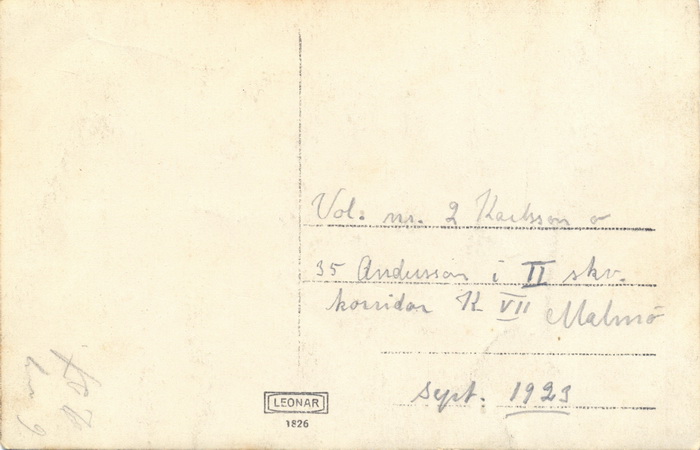 Vol. nr. 2 Karlsson o
35 Andersson i II skv.
korridor K VII Malmö
Sept. 1923
LEONAR
1826